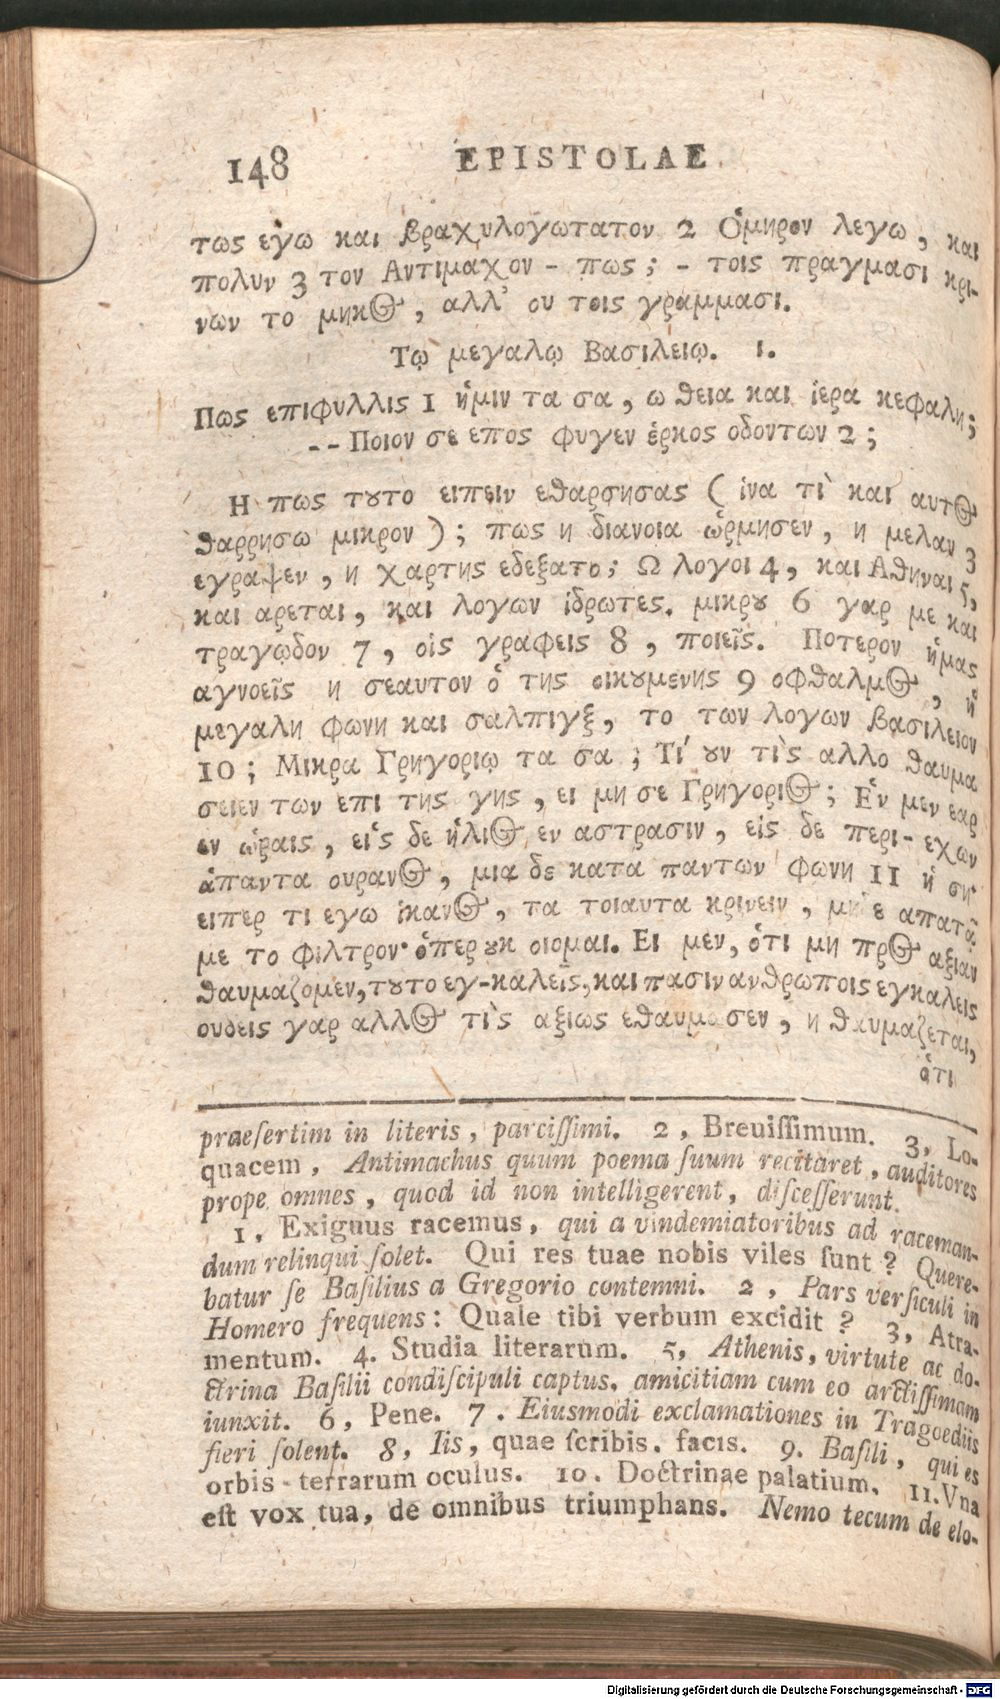 148 EPISTOLAE
τως εγω και βραχυλογωτατον 2 Ὁμηρον λεγω, και
πολυν 3 τον Αντιμαχον - πως; - τοις πραγμασι κρι-
νων το μηκος, αλλ' ου τοις γραμμασι.
Τῳ μεγαλῳ Βασιλειῳ. 1.
Πως επιφυλλις 1 ἡμιν τα σα, ω θεια και ἱερα κεφαλη;
-- Ποιον σε επος φυγεν ἑρκος οδοντων 2;
Η πως τȣτο ειπειν εθαρσησας (ἱνα τὶ και αυτος
θαρρησω μικρον); πως η διανοια ὡρμησεν, η μελαν 3
εγραψεν, η χαρτης εδεξατο; Ω λογοι 4, και Αθηναι 5,
και αρεται, και λογων ἱδρωτες. μικρȣ 6 γαρ με και
τραγῳδον 7, οἱς γραφεις 8, ποιεῖς. Ποτερον ἡμας
αγνοεῖς η σεαυτον ὁ της οικȣμενης 9 οφθαλμος, ἡ
μεγαλη φωνη και σαλπιγξ, το των λογων βασιλειον
10; Μικρα Γρηγοριῳ τα σα; Τί ȣν τὶς αλλο θαυμα
σειεν των επι της γης, ει μη σε Γρηγοριος; Ἑν μεν εαρ
εν ὡραις, εἱς δε ἡλιος εν αστρασιν, εἱς δε περι-εχων
ἁπαντα ουρανος, μια δε κατα παντων φωνη 11 ἡ ση·
ειπερ τι εγω ἱκανος, τα τοιαυτα κρινειν, μη ε απατᾳ
με το φιλτρον· ὁπερ ȣκ οιομαι. Ει μεν, ὁτι μη προς αξιαν
θαυμαζομεν, τȣτο εγ-καλεῖς, και πασιν ανθρωποις εγκαλεις
ουδεις γαρ αλλος τὶς αξιως εθαυμασεν, η θαυμαζεται,
ὁτι
praeſertim in literis, parciſſimi. 2, Breuiſſimum. 3, Lo-
quacem, Antimachus quum poema ſuum recitaret, auditores
prope omnes, quod id non intelligerent, diſceſſerunt.
1, Exiguus racemus, qui a vindemiatoribus ad raceman-
dum relinqui ſolet. Qui res tuae nobis viles ſunt? Quere-
batur ſe Baſilius a Gregorio contemni. 2, Pars verſiculi in
Homero frequens: Quale tibi verbum excidit? 3, Atra-
mentum. 4. Studia literarum. 5, Athenis, virtute ac do-
ctrina Baſilii condiſcipuli captus, amicitiam cum eo arctiſſimam
iunxit. 6, Pene. 7. Eiusmodi exclamationes in Tragoediis
fieri ſolent. 8, Iis, quae ſcribis, facis. 9. Baſili, qui es
orbis terrarum oculus. 10. Doctrinae palatium. 11. Vna
eſt vox tua, de omnibus triumphans. Nemo tecum de elo-
Digitalisierung gefördert durch die Deutsche Forschungsgemeinschaft - DFG